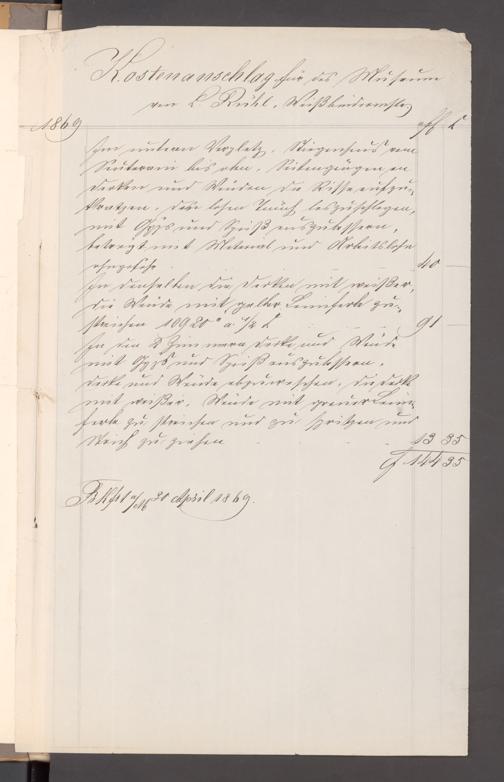 Kostenanschlag für das Museum
von L. Rühl, Weißbindermstr
1869 fl x
Im untern Vorplatz, Stiegenhaus vom
Souterrain bis oben, Seitengängen an
Decken und Wänden die Risse aufzu-
kratzen, den losen Tünch loszuschlagen,
mit Gyps und Speiß auszubessern,
beträgt mit Material und Arbeitslohn
ohngefähr 40 —
In denselben die Decken mit weißer,
die Wände mit gelber Leimfarbe zu
streichen 10920 ☐' a ½ x 91 —
In den 2 Zimmern Decke und Wände
mit Gyps und Speiß auszubessern,
Decke und Wände abzuwaschen, die Decke
mit weißer, Wände mit grauer Leim-
farbe zu streichen und zu spritzen und
Strich zu ziehen 13 35
fl 144 35
Fkfrt a/M 20 April 1869.